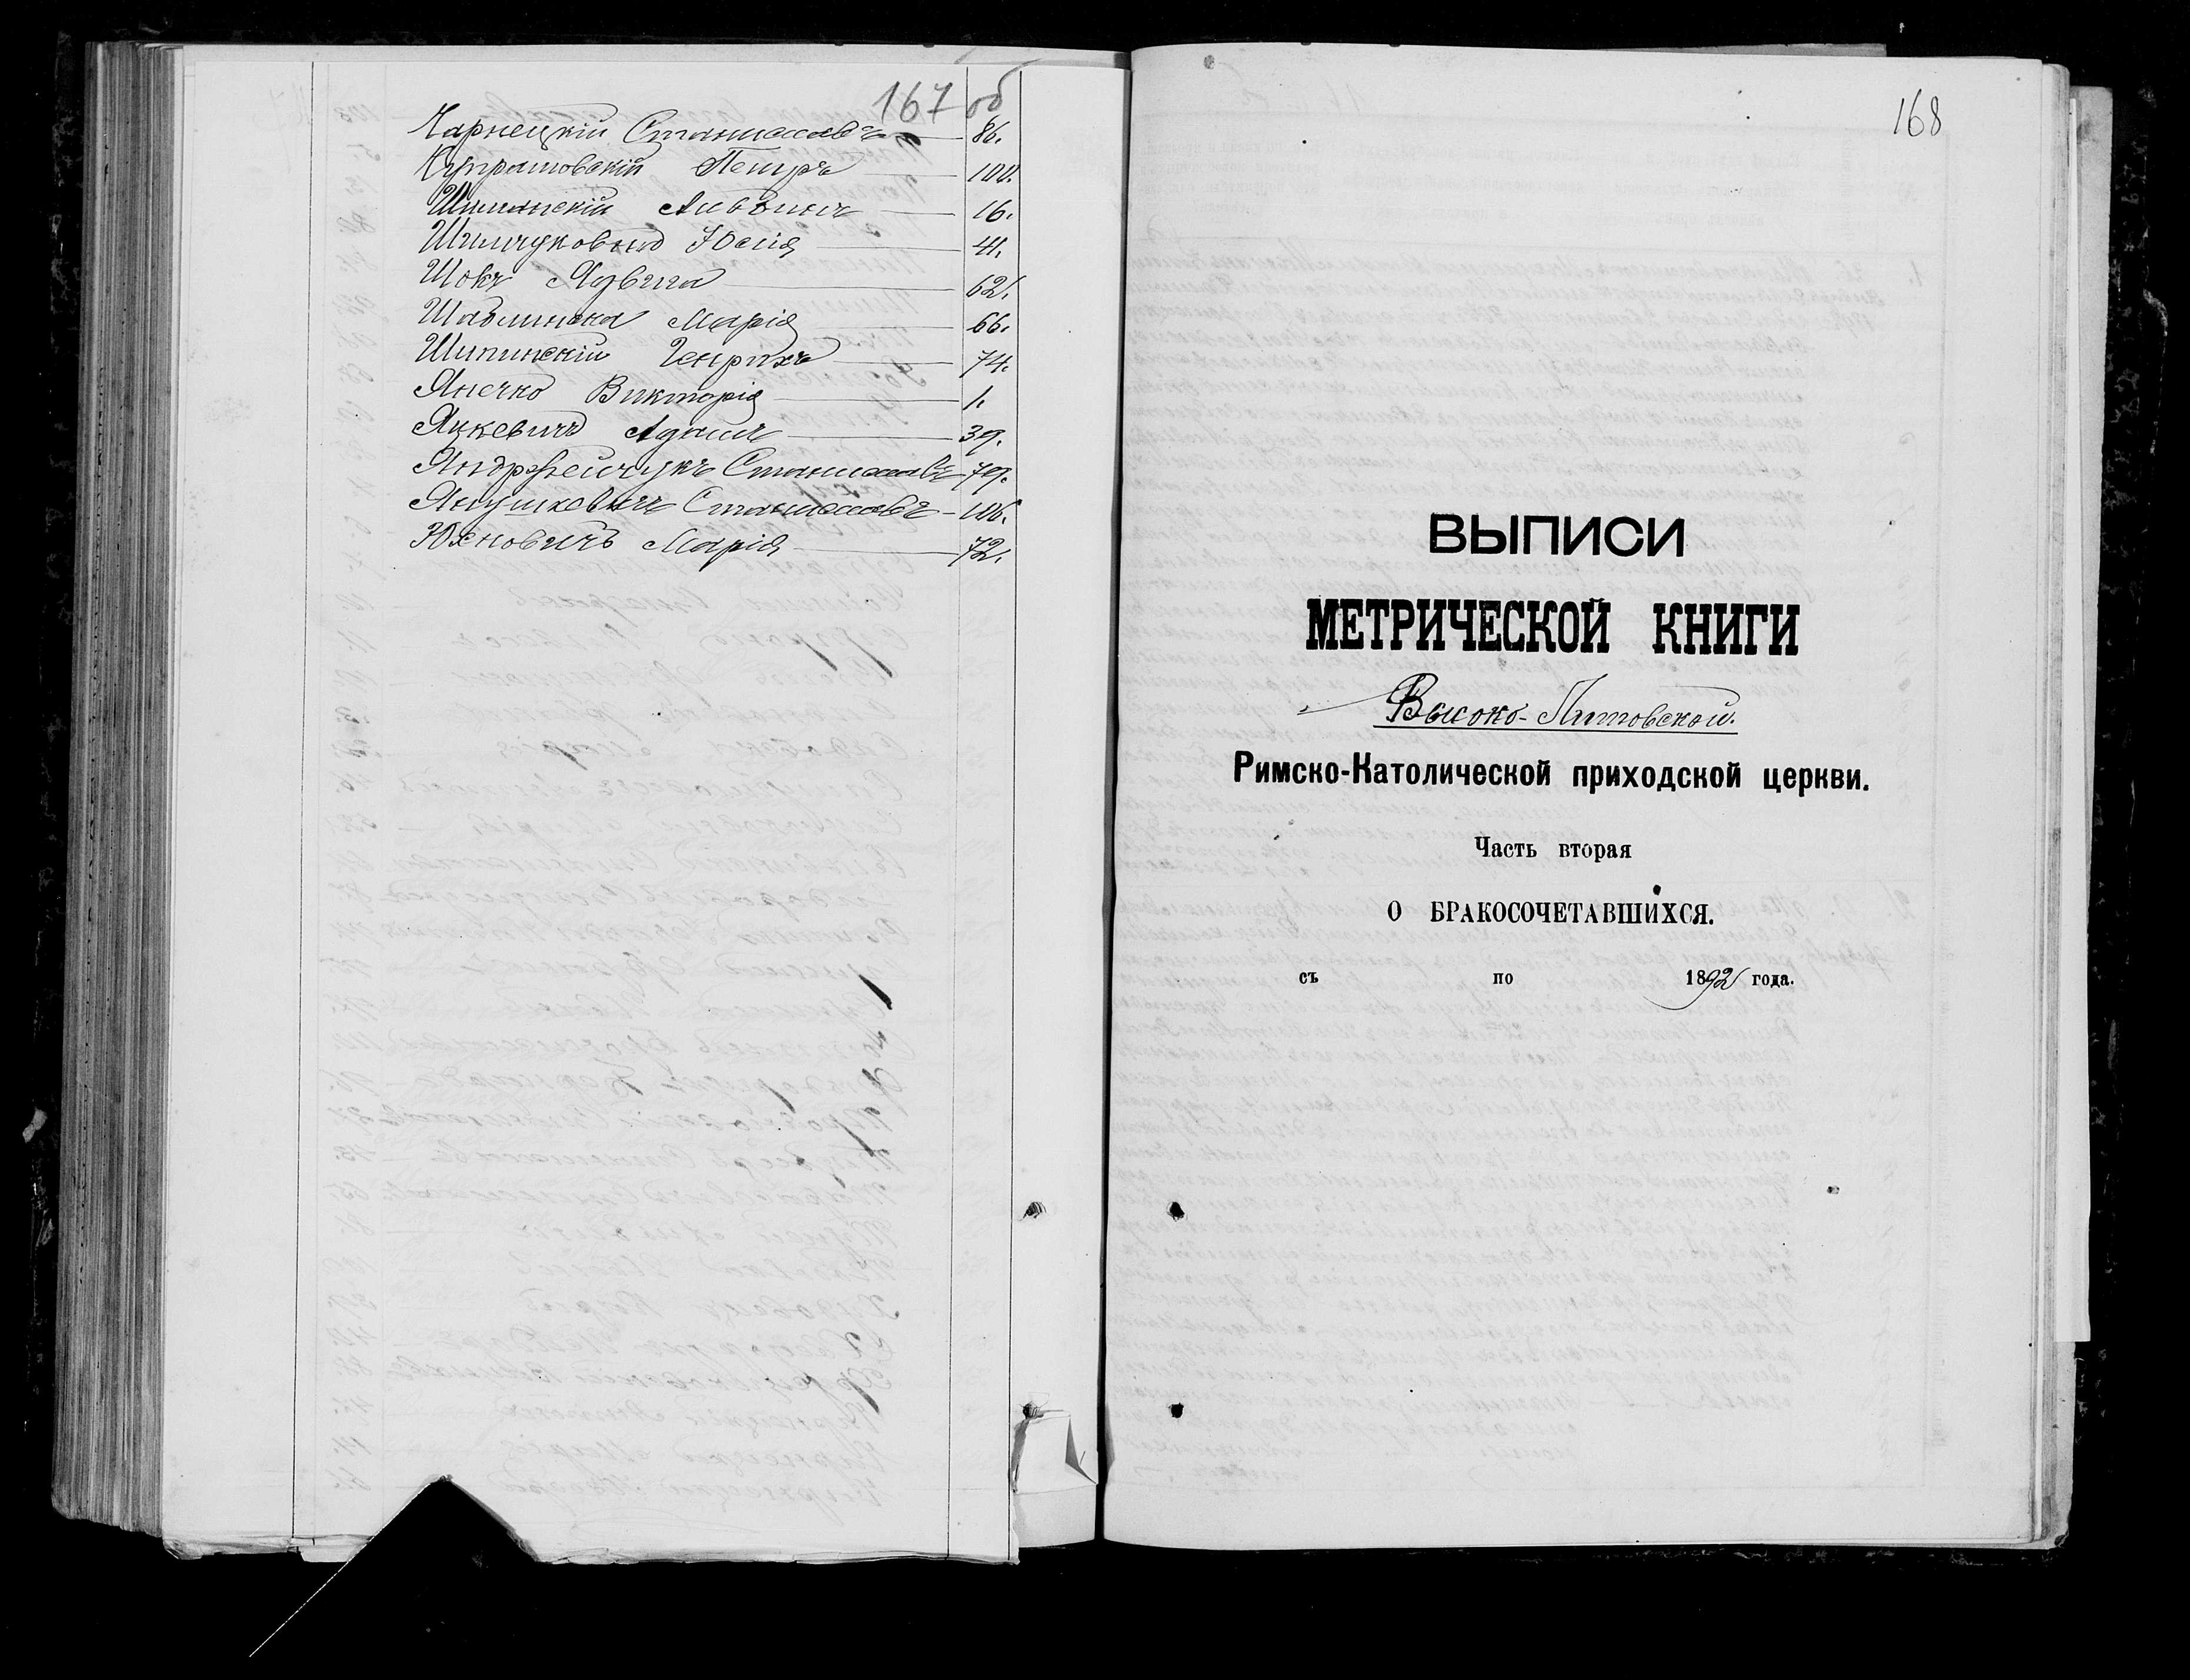 167 об
Чарнецкій Станиславъ 86.
Купрашовскій Петръ 100.
Шиманскій Антонъ 16.
Шимчуковна Юлія 41.
Шокъ Ядвига 62.
Шаблинска Марія 66.
Шипинскій Генрихъ 74.
Янечко Викторія 1.
Яцкевичъ Адамъ 39.
Андржейчукъ Станиславъ 79.
Янушкевичъ Станиславъ 106.
Юхновичъ Марія 72.
168
ВЫПИСИ
МЕТРИЧЕСКОЙ КНИГИ
Высоко-Литовской.
Римско-Католической приходской церкви.
Часть вторая
О БРАКОСОЧЕТАВШИХСЯ.
съ по 1892 года.